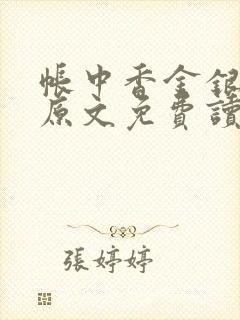 帳中香金銀
原文免費讀
張婷婷